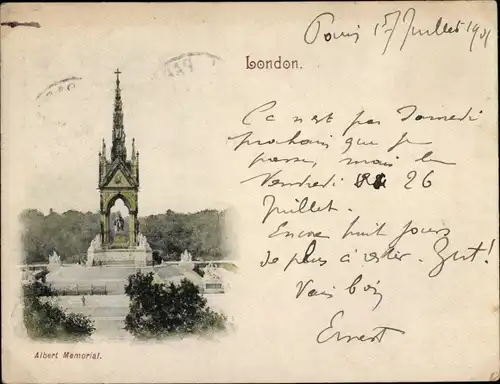 Paris 15 Juillet 1901
London.
Ca n'est pas Samedi
prochain que je
passe, mais le
Vendredi 26
Juillet.
Encore huit jours
de plus à rester. Zut!
Vais bien
Ernest
Albert Memorial.